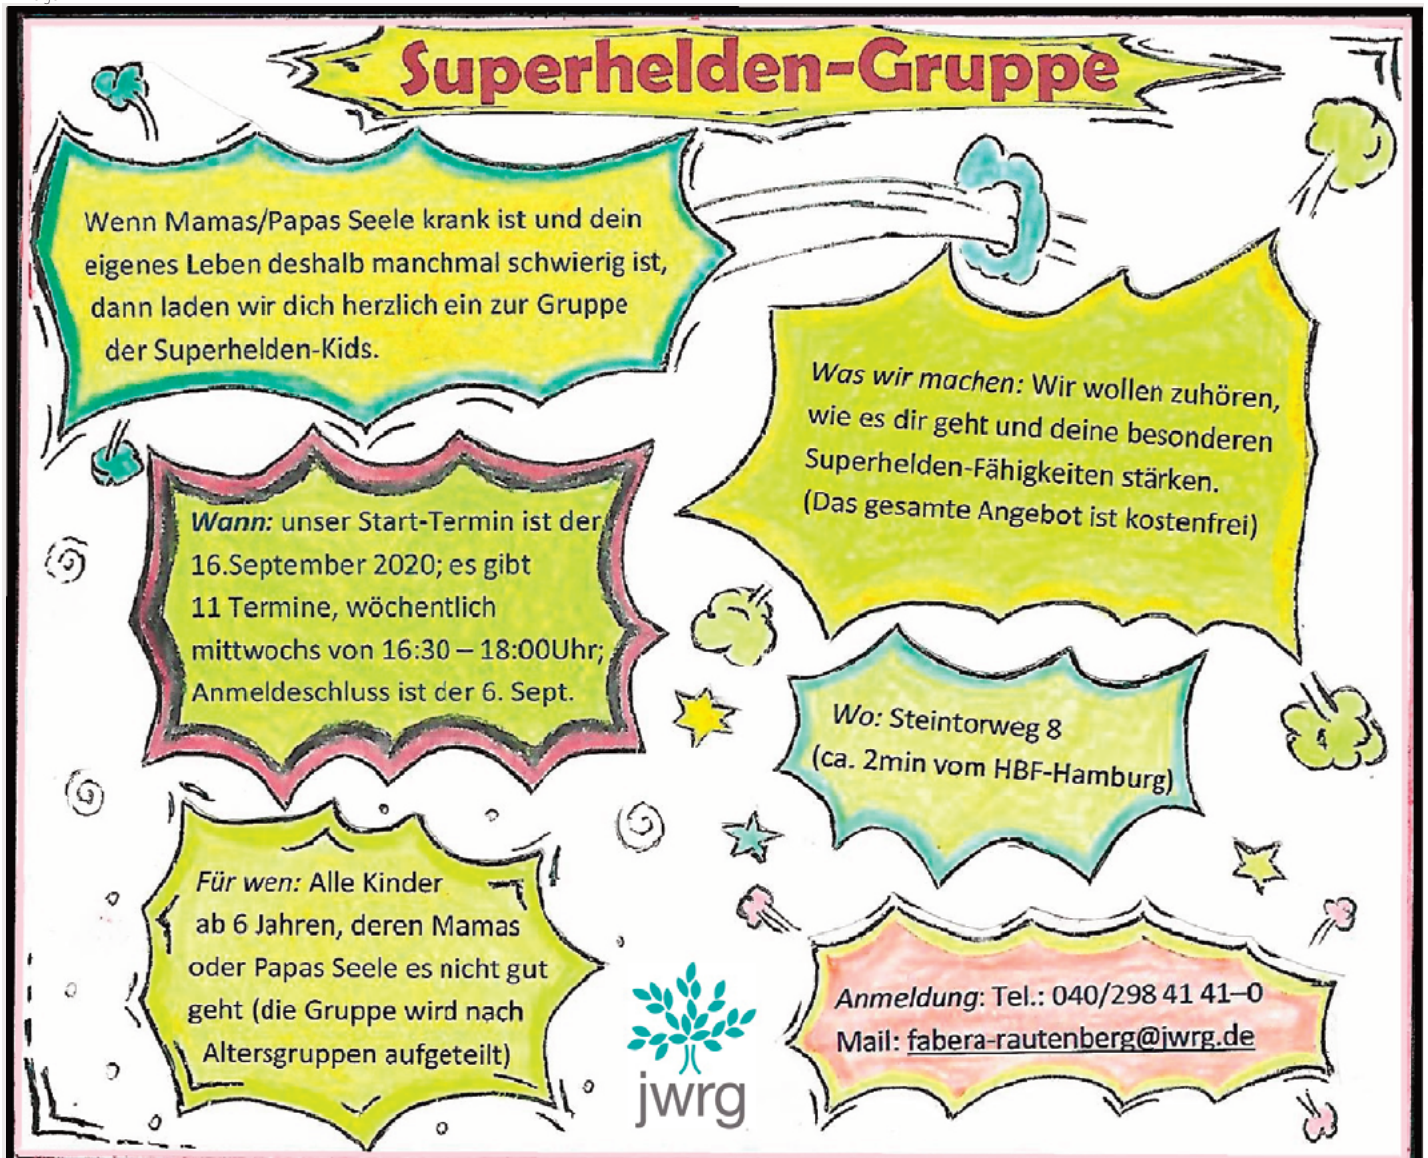 Superhelden-Gruppe
Wenn Mamas/Papas Seele krank ist und dein
eigenes Leben deshalb manchmal schwierig ist,
dann laden wir dich herzlich ein zur Gruppe
der Superhelden-Kids.
Was wir machen: Wir wollen zuhören,
wie es dir geht und deine besonderen
Superhelden-Fähigkeiten stärken.
(Das gesamte Angebot ist kostenfrei)
Wann: unser Start-Termin ist der
16.September 2020; es gibt
11 Termine, wöchentlich
mittwochs von 16:30 – 18:00Uhr;
Anmeldeschluss ist der 6. Sept.
Wo: Steintorweg 8
(ca. 2min vom HBF-Hamburg)
Für wen: Alle Kinder
ab 6 Jahren, deren Mamas
oder Papas Seele es nicht gut
geht (die Gruppe wird nach
Altersgruppen aufgeteilt)
Anmeldung: Tel.: 040/298 41 41–0
Mail: fabera-rautenberg@jwrg.de
jwrg